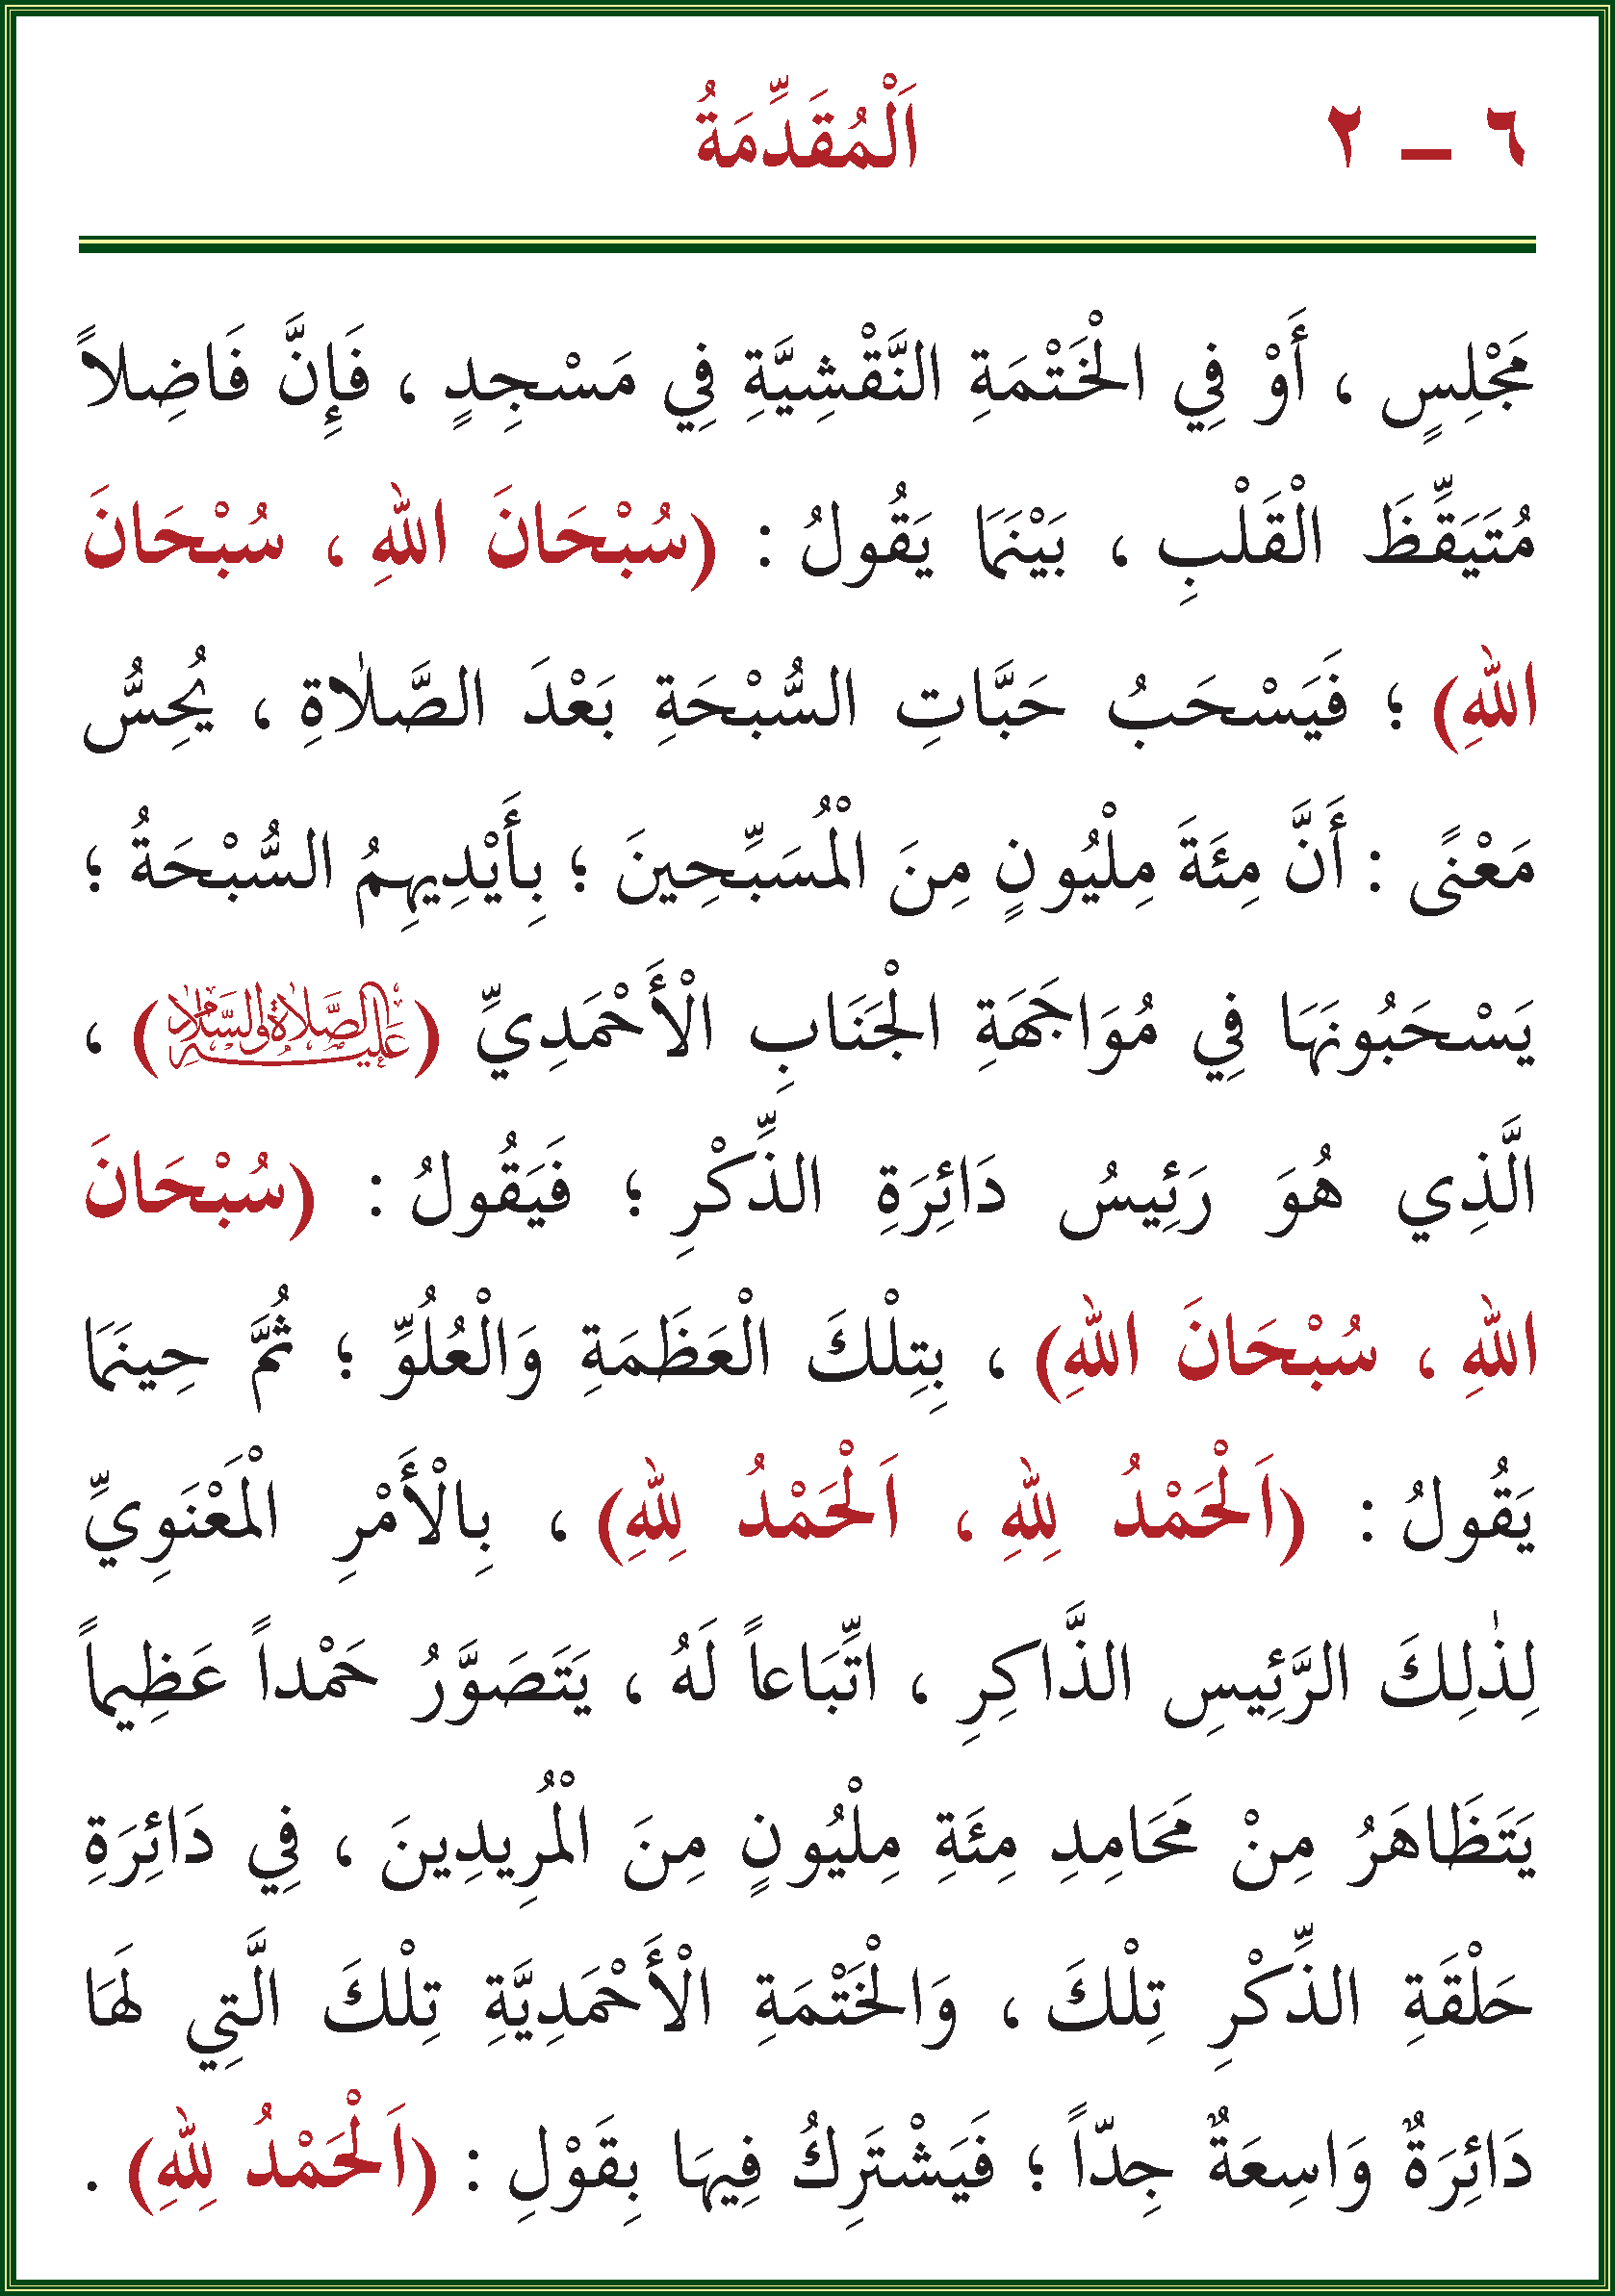 ٦ – ٢ اَلْمُقَدِّمَةُ
مَجْلِسٍ ، أَوْ فِي الْخَتْمَةِ النَّقْشِيَّةِ فِي مَسْجِدٍ ، فَإِنَّ فَاضِلاً
مُتَيَقِّظَ الْقَلْبِ ، بَيْنَمَا يَقُولُ : (سُبْحَانَ اللهِ ، سُبْحَانَ
اللهِ) ؛ فَيَسْحَبُ حَبَّاتِ السُّبْحَةِ بَعْدَ الصَّلٰاةِ ، يُحِسُّ
مَعْنًى : أَنَّ مِئَةَ مِلْيُونٍ مِنَ الْمُسَبِّحِينَ ؛ بِأَيْدِيهِمُ السُّبْحَةُ ؛
يَسْحَبُونَهَا فِي مُوَاجَهَةِ الْجَنَابِ الْأَحْمَدِيِّ (عَلَيْهِ الصَّلَاةُ وَالسَّلَامُ) ،
الَّذِي هُوَ رَئِيسُ دَائِرَةِ الذِّكْرِ ؛ فَيَقُولُ : (سُبْحَانَ
اللهِ ، سُبْحَانَ اللهِ) ، بِتِلْكَ الْعَظَمَةِ وَالْعُلُوِّ ؛ ثُمَّ حِينَمَا
يَقُولُ : (اَلْحَمْدُ لِلهِ ، اَلْحَمْدُ لِلهِ) ، بِالْأَمْرِ الْمَعْنَوِيِّ
لِذٰلِكَ الرَّئِيسِ الذَّاكِرِ ، اتِّبَاعاً لَهُ ، يَتَصَوَّرُ حَمْداً عَظِيماً
يَتَظَاهَرُ مِنْ مَحَامِدِ مِئَةِ مِلْيُونٍ مِنَ الْمُرِيدِينَ ، فِي دَائِرَةِ
حَلْقَةِ الذِّكْرِ تِلْكَ ، وَالْخَتْمَةِ الْأَحْمَدِيَّةِ تِلْكَ الَّتِي لَهَا
دَائِرَةٌ وَاسِعَةٌ جِدّاً ؛ فَيَشْتَرِكُ فِيهَا بِقَوْلِ : (اَلْحَمْدُ لِلهِ) .